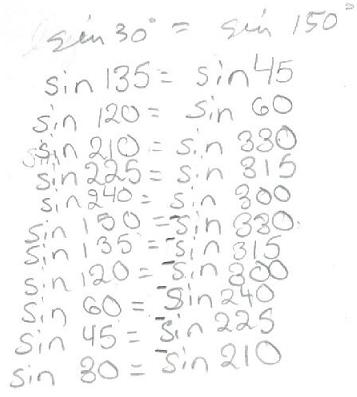 sin 30° = sin 150°
sin 135 = sin 45
sin 120 = sin 60
sin 210 = sin 330
sin 225 = sin 315
sin 240 = sin 300
sin 150 = -sin 330.
sin 135 = -sin 315
sin 120 = -sin 300
sin 60 = -sin 240
sin 45 = -sin 225
sin 30 = -sin 210